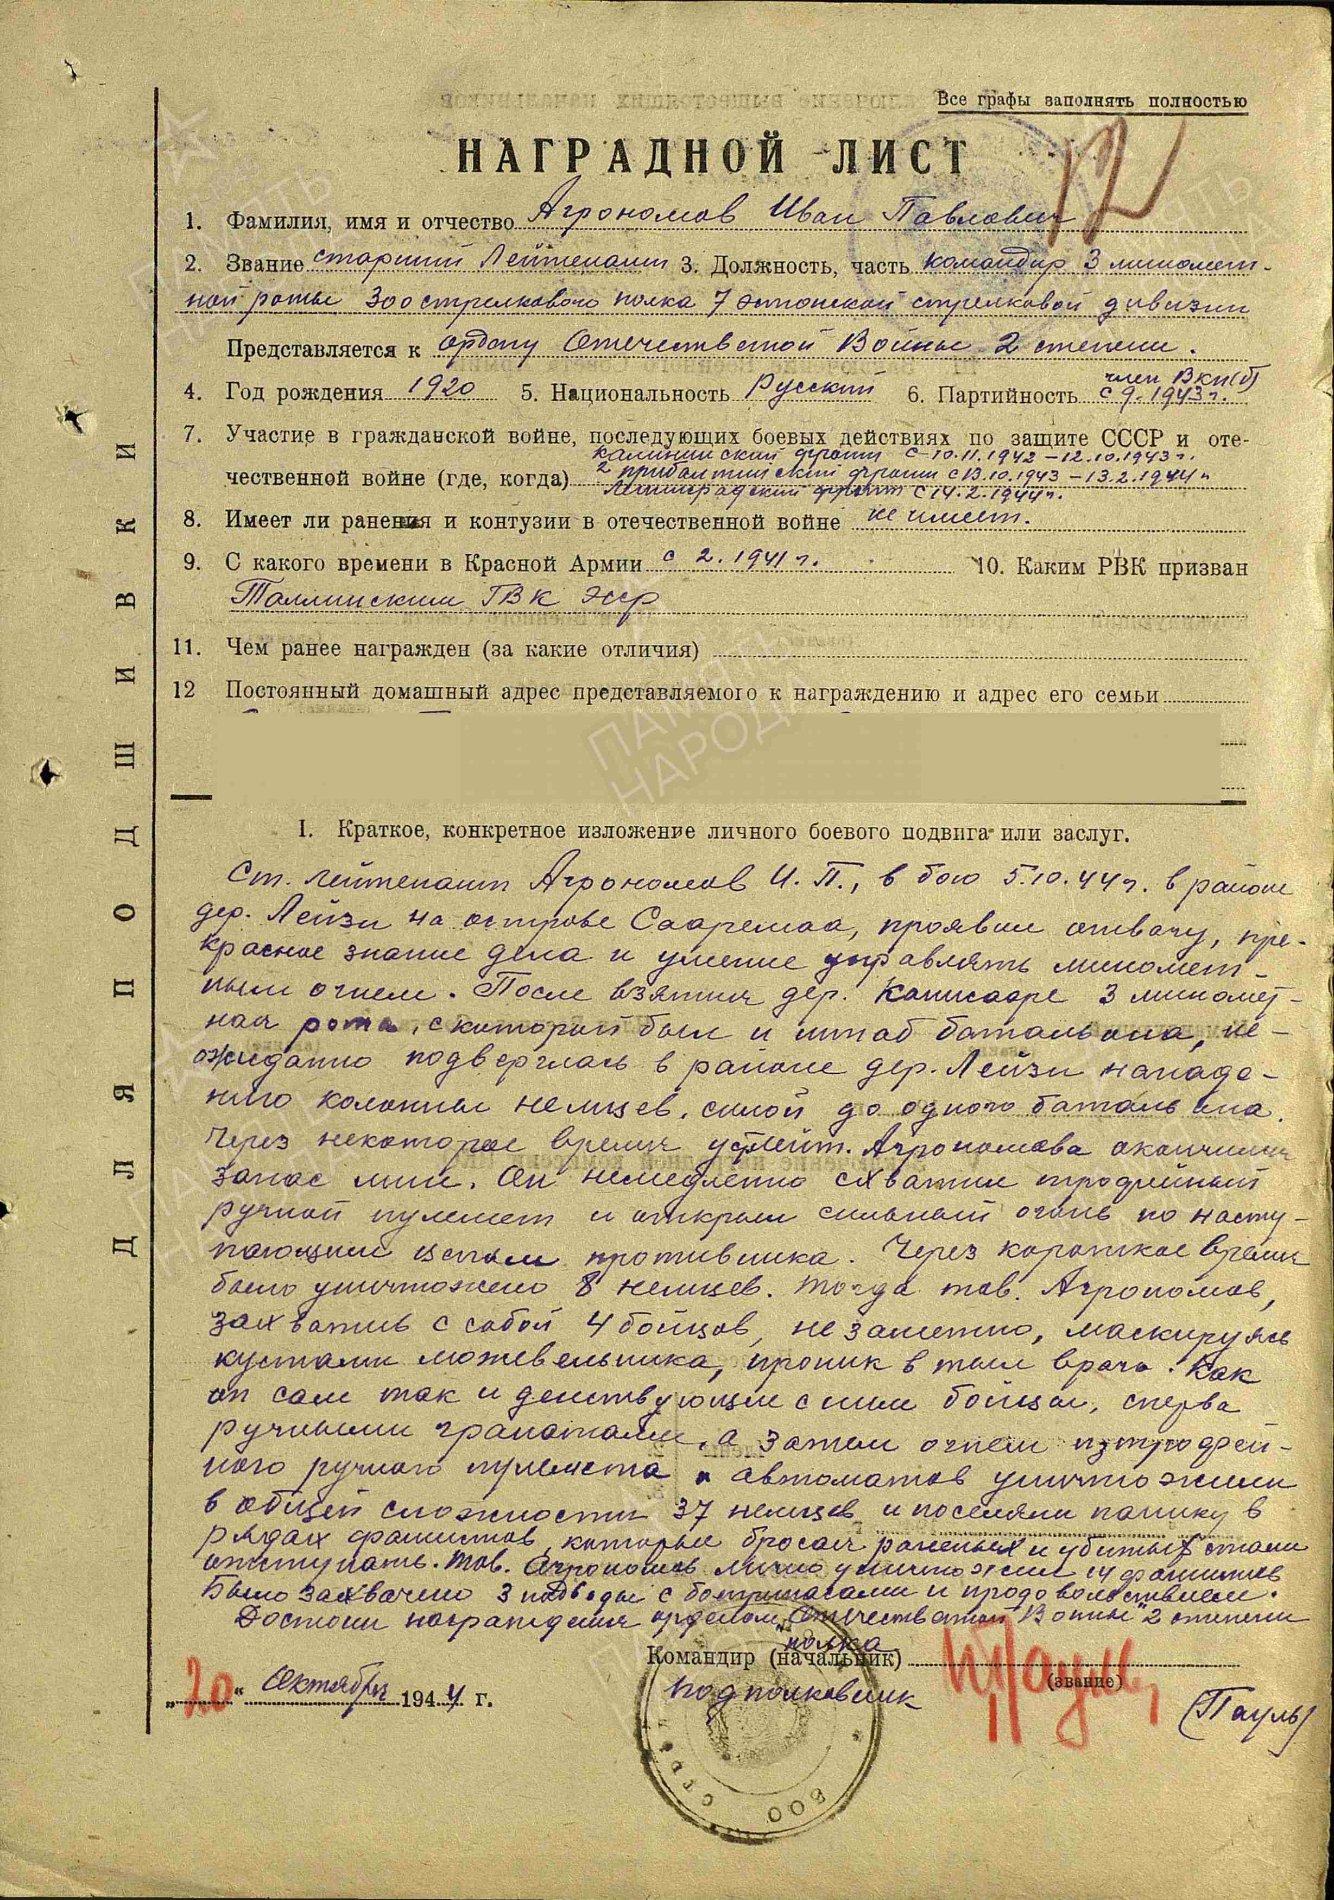 Все графы заполнять полностью
12
НАГРАДНОЙ ЛИСТ
1. Фамилия, имя и отчество Агрономов Иван Павлович
2. Звание старший Лейтенант 3. Должность, часть командир 3 миномет-
ной роты 300 стрелкового полка 7 эстонской стрелковой дивизии
Представляется к ордену Отечественой Войны 2 степени.
4. Год рождения 1920 5. Национальность Русский 6. Партийность член ВКП(б) с 9. 1943 г.
7. Участие в гражданской войне, последующих боевых действиях по защите СССР и оте-
калининский фронт с 10.11.1942 - 12.10.1943 г.
чественной войне (где, когда) 2 прибалтийский фронт с 13.10.1943 - 13.2.1944 г.
Ленинградский фронт с 14.2.1944 г.
8. Имеет ли ранения и контузии в отечественной войне не имеет.
9. С какого времени в Красной Армии с 2. 1941 г. 10. Каким РВК призван
Таллинским ГВК ЭССР
11. Чем ранее награжден (за какие отличия)
12 Постоянный домашный адрес представляемого к награждению и адрес его семьи
ДЛЯ ПОДШИВКИ
I. Краткое, конкретное изложение личного боевого подвига или заслуг.
Ст. лейтенант Агрономов И. П., в бою 5.10.44 г. в районе
дер. Лейзи на острове Сааремаа, проявил отвагу, пре-
красное знание дела и умение управлять миномет-
ным огнем. После взятия дер. Каписааре 3 миномет-
ная рота, с которой был и штаб батальона, не-
ожиданно подверглась в районе дер. Лейзи нападе-
нию колонны немцев, силой до одного батальона.
Через некоторое время у ст. лейт. Агрономова окончился
запас мин. Он немедленно схватил трофейный
ручной пулемет и открыл сильный огонь по насту-
пающим цепям противника. Через короткое время
было уничтожено 8 немцев. Тогда тов. Агрономов,
захватив с собой 4 бойцов, незаметно, маскируясь
кустами можевельника, проник в тыл врага. Как
он сам так и действующие с ним бойцы, сперва
ручными гранатами, а затем огнем из трофей-
ного ручного пулемета и автоматов уничтожили
в общей сложности 37 немцев и посеяли панику в
рядах фашистов, которые бросая раненых и убитых стали
отступать. Тов. Агрономов лично уничтожил 14 фашистов
Было захвачено 3 подводы с боеприпасами и продовольствием.
Достоин награждения орденом „Отечественой Войны" 2 степени
полка
Командир (начальник)
(звание)
„20" Октября 1944 г.
Подполковник
Пауль
(Пауль)
300 СТР
ПАМЯТЬ НАРОДА